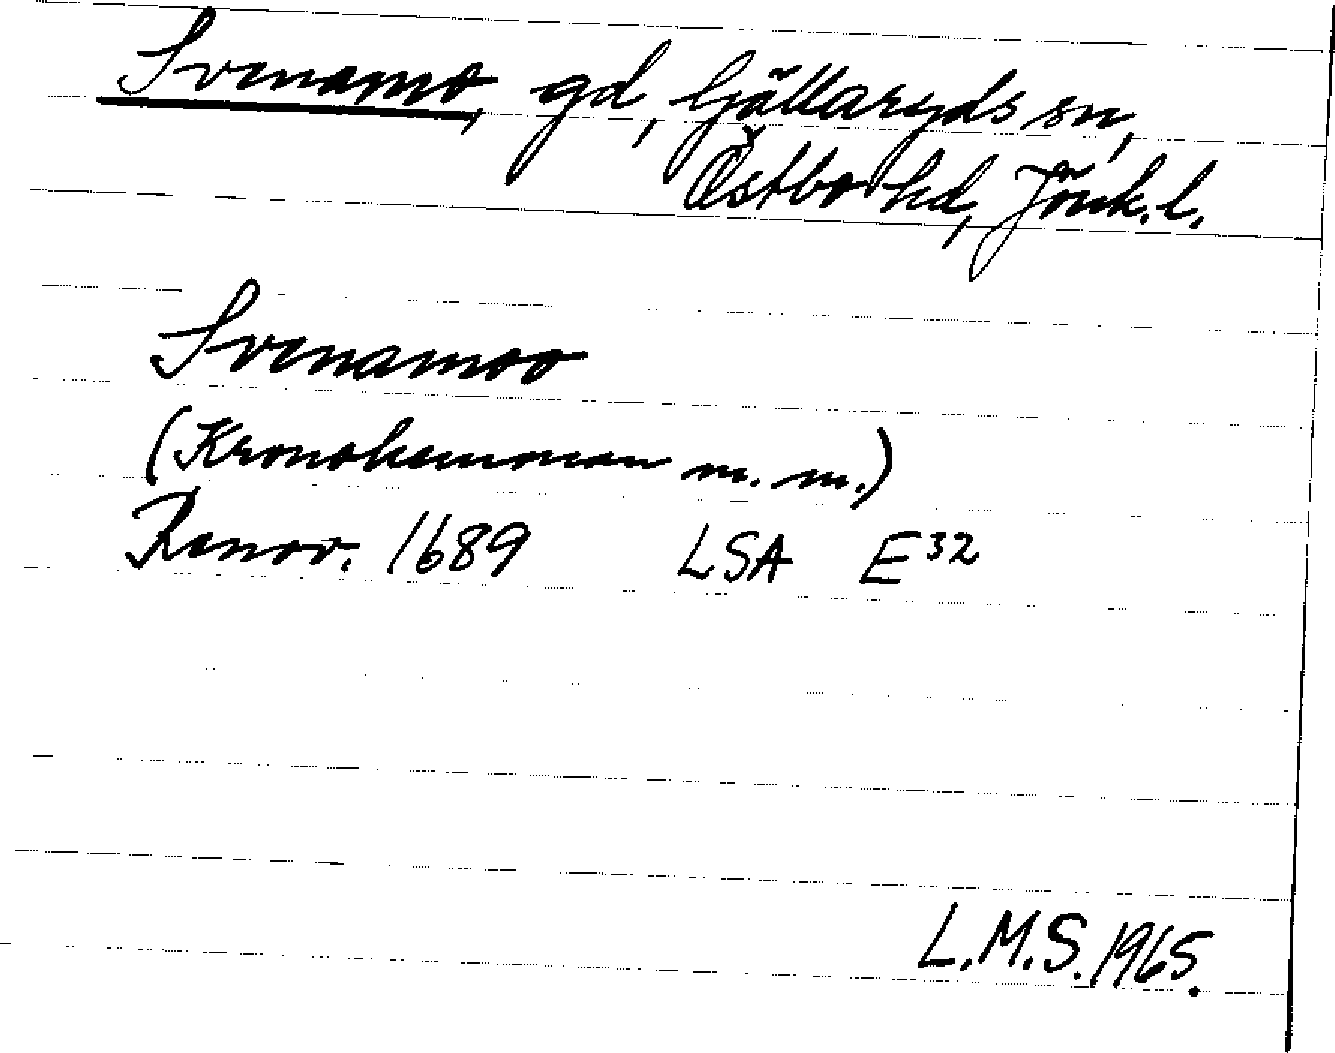 Svenamo, gd, Gällaryds sn,
Östbo hd, Jönk. l.
Svenamoo
(Kronohemman m. m.)
Renov. 1689 LSA E 32
L.M.S. 1965.